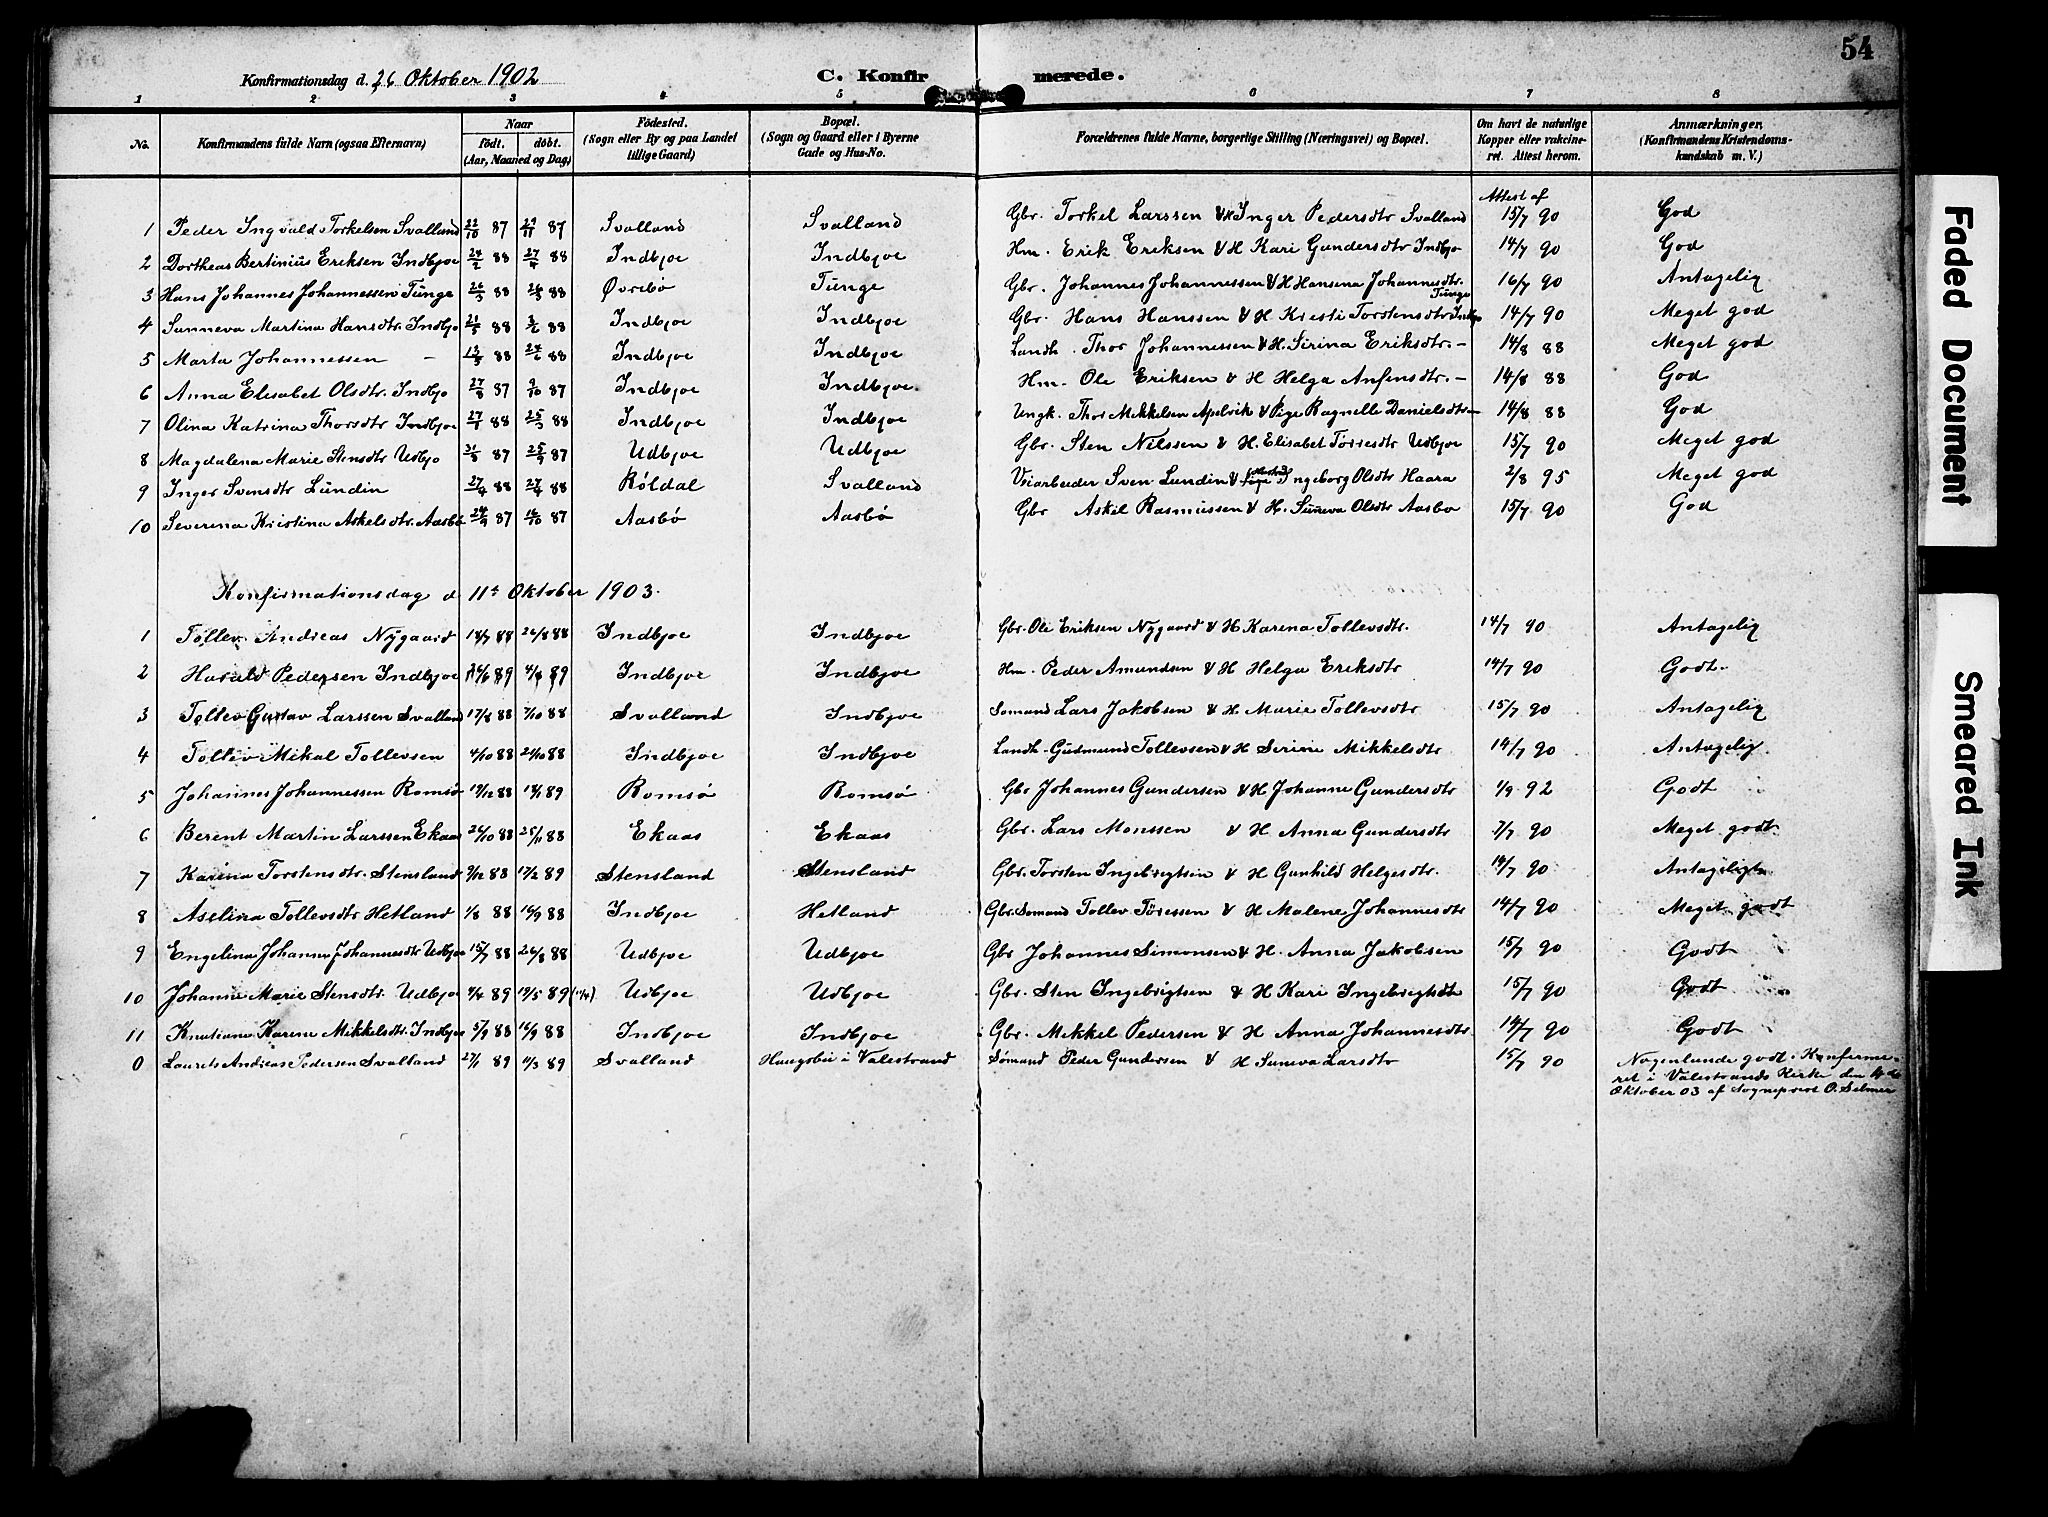 54
Konfirmationsdag d. 26 Oktober 1902 C. Konfirmerede.
1 2 3 4 5 6 7 8
No. Konfirmandens fulde Navn (ogsaa Efternavn) Naar födt. döbt. (Aar, Maaned og Dag) Födested. (Sogn eller By og paa Landet tillige Gaard) Bopæl. (Sogn og Gaard eller i Byerne Gade og Hus-No. Forældrenes fulde Navne, borgerlige Stilling (Næringsvei) og Bopæl. Om havt de naturlige Kopper eller vakcineret. Attest herom. Anmærkninger, (Konfirmandens Kristendomskundskab m. V.)
Attest af
1 Peder Ingvald Torkelsen Svalland 22/10 87 27/11 87 Svalland Svalland Gbr. Torkel Larssen & H Inger Pedersdtr Svalland 15/7 90 God
2 Dortheas Bertinius Eriksen Indbjoe 24/2 88 27/4 88 Indbjoe Indbjoe Hm. Erik Eriksen & H Kari Gundersdtr Indbjo 14/7 90 God
3 Hans Johannes Johannessen Tunge 26/3 88 26/5 88 Övrebö Tunge Gbr. Johannes Johannessen & H Hansena Johannesdtr. Tunge 16/7 90 Antagelig
4 Sunneva Martina Hansdtr. Indbjo 21/5 88 3/6 88 Indbjoe Indbjoe Gbr. Hans Hanssen & H Kristi Torstensdtr Indbjo 14/7 90 Meget god
5 Marta Johannessen - 13/5 88 24/6 88 Indbjoe Indbjoe Landh. Thor Johannessen & H. Sirina Eriksdtr. - 14/8 88 Meget god
6 Anna Elisabet Olsdtr. Indbjo 27/8 87 9/10 87 Indbjoe Indbjoe. Hm. Ole Eriksen & H Helga Anfensdtr. - 14/8 88 God
7 Olina Katrina Thorsdtr Indbjoe 27/1 88 25/3 88 Indbjoe Indbjoe Ungk. Thor Mikkelsen Apelvik & Pige Ragnelle Danielsdtr - 14/8 88 God
8 Magdalena Marie Stensdtr Udbjo 21/8 87 25/9 87 Udbjoe Udbjoe Gbr. Sten Nilssen & H. Elisabet Torresdtr Udbjoe 15/7 90 Meget god
9 Inger Svensdtr Lundin 27/4 88 27/4 88 Röldal Svalland Veiarbeider Sven Lundin & Ingeborg Olsdtr Haara 2/8 95 Meget god
10 Severina Kristina Askelsdtr. Aasbö 24/9 87 16/10 87 Aasbö Aasbö Gbr Askil Rasmussen & H. Suneva Olsdtr Aasbo 15/7 90 God
Konfirmationsdag d 11te Oktober 1903.
1 Tollev Andreas Nygaard 18/7 88 26/8 88 Indbjoe Indbjoe Gbr. Ole Eriksen Nygaard & H Karena Tollevsdtr. 14/7 90 Antagelig
2 Harald Pedersen Indbjoe 89 89 Indbjoe Indbjoe Hm. Peder Amundsen & H Helga Eriksdtr 14/7 90 Godt.
3 Tollev Gustav Larssen Svalland 17/8 88 7/10 88 Svalland Indbjoe Sømand Lars Jakobsen & H. Marie Tollevsdtr 15/7 90 Antagelig
4 Tollev Mikal Tollevsen 4/10 88 21/10 88 Indbjoe Indbjoe Landh. Gudmund Tollevsen & H Serine Mikkelsdtr 14/7 90 Antagelig.
5 Johannes Johannessen Romsö 19/12 88 13/1 89 Romsö Romsö Gbr Johannes Gundersen & H Johanne Gundersdtr 1/9 92 Godt
6 Berent Martin Larssen Ekaas 26/10 88 25/11 88 Ekaas Ekaas Gbr. Lars Monssen & H Anna Gundersdtr 7/7 90 Meget godt.
7 Karina Torstensdtr. Stensland 9/12 88 17/2 89 Stensland Stensland Gbr. Torsten Ingebrigtsen & H Gunhild Helgesdtr. 14/7 90 Antageligt
8 Aselina Tollevsdtr Hetland 1/8 88 16/9 88 Indbjoe Hetland Gbr. Sømand Tollev Töressen & H Malene Johannesdtr 14/7 90 Meget godt
9 Engelina Johanna Johannesdtr Udbjoe 15/7 88 26/8 88 Udbjoe Udbjoe Gbr Johannes Simonsen & H. Anna Jakobsen 15/7 90 Godt
10 Johanne Marie Stensdtr. Udbjoe 9/4 89 19/5 89 Udbjoe Udbjoe Gbr. Sten Ingebrigtsen & H Kari Ingebrigtsdt 15/7 90 Godt
11 Knutiane Karine Mikkelsdtr. Indbjoe 5/9 88 16/9 88 Indbjoe Indbjoe Gbr. Mikkel Pedersen & H Anna Johannesdtr. 14/7 90 Godt
0 Laurits Andreas Pedersen Svalland 27/1 89 11/3 89 Svalland Haugsbö i Valestrand Sömand Peder Gundersen & H Suneva Larsdtr 15/7 90 Nogenlunde godt. Konfirme-
ret i Valestrands Kirke den 4de
Oktober 03 af Sogneprest O. Selmer
Faded Document
Smeared Ink